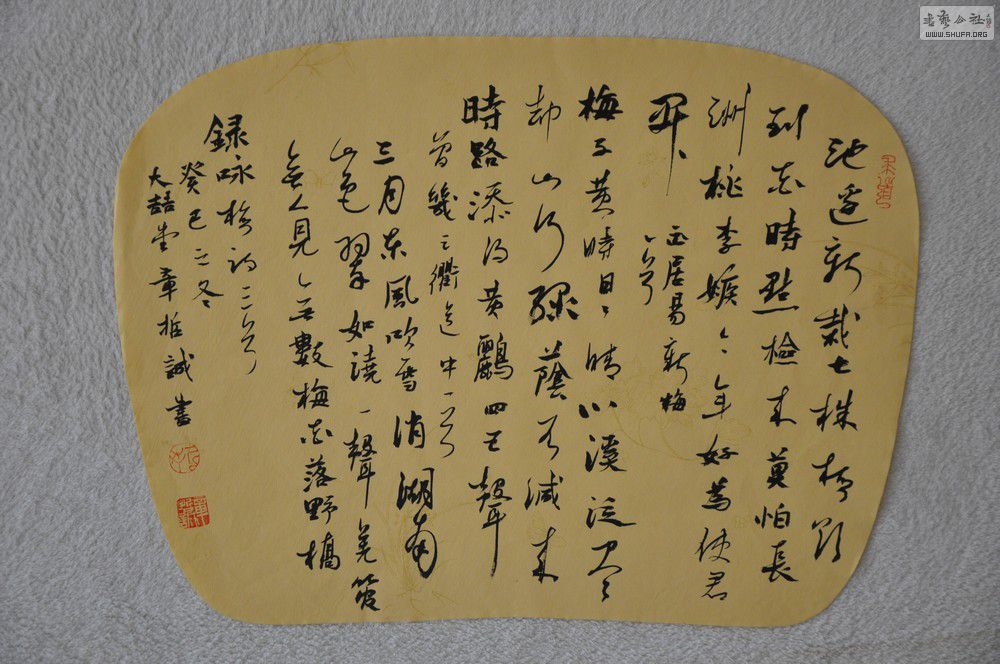 池邊新栽七株梅欲
到花時點檢來莫怕長
洲桃李嫉今年好為使君
開
白居易新梅
一首
梅子黃時日〻晴小溪泛盡
却山行綠蔭不減來
時路添得黃鸝四五聲
曾幾三衢道中一首
三月東風吹雪消湖南
山色翠如澆一聲羌管
無人見無數梅花落野橋
錄咏梅詩三首
癸巳之冬
大喆堂章誠書
書藝公社
WWW.SHUFA.ORG